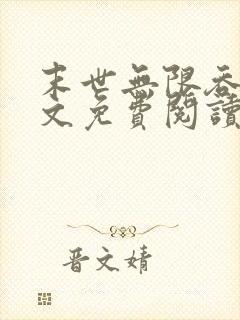 末世無限吞
文免費閱讀
晋文婧